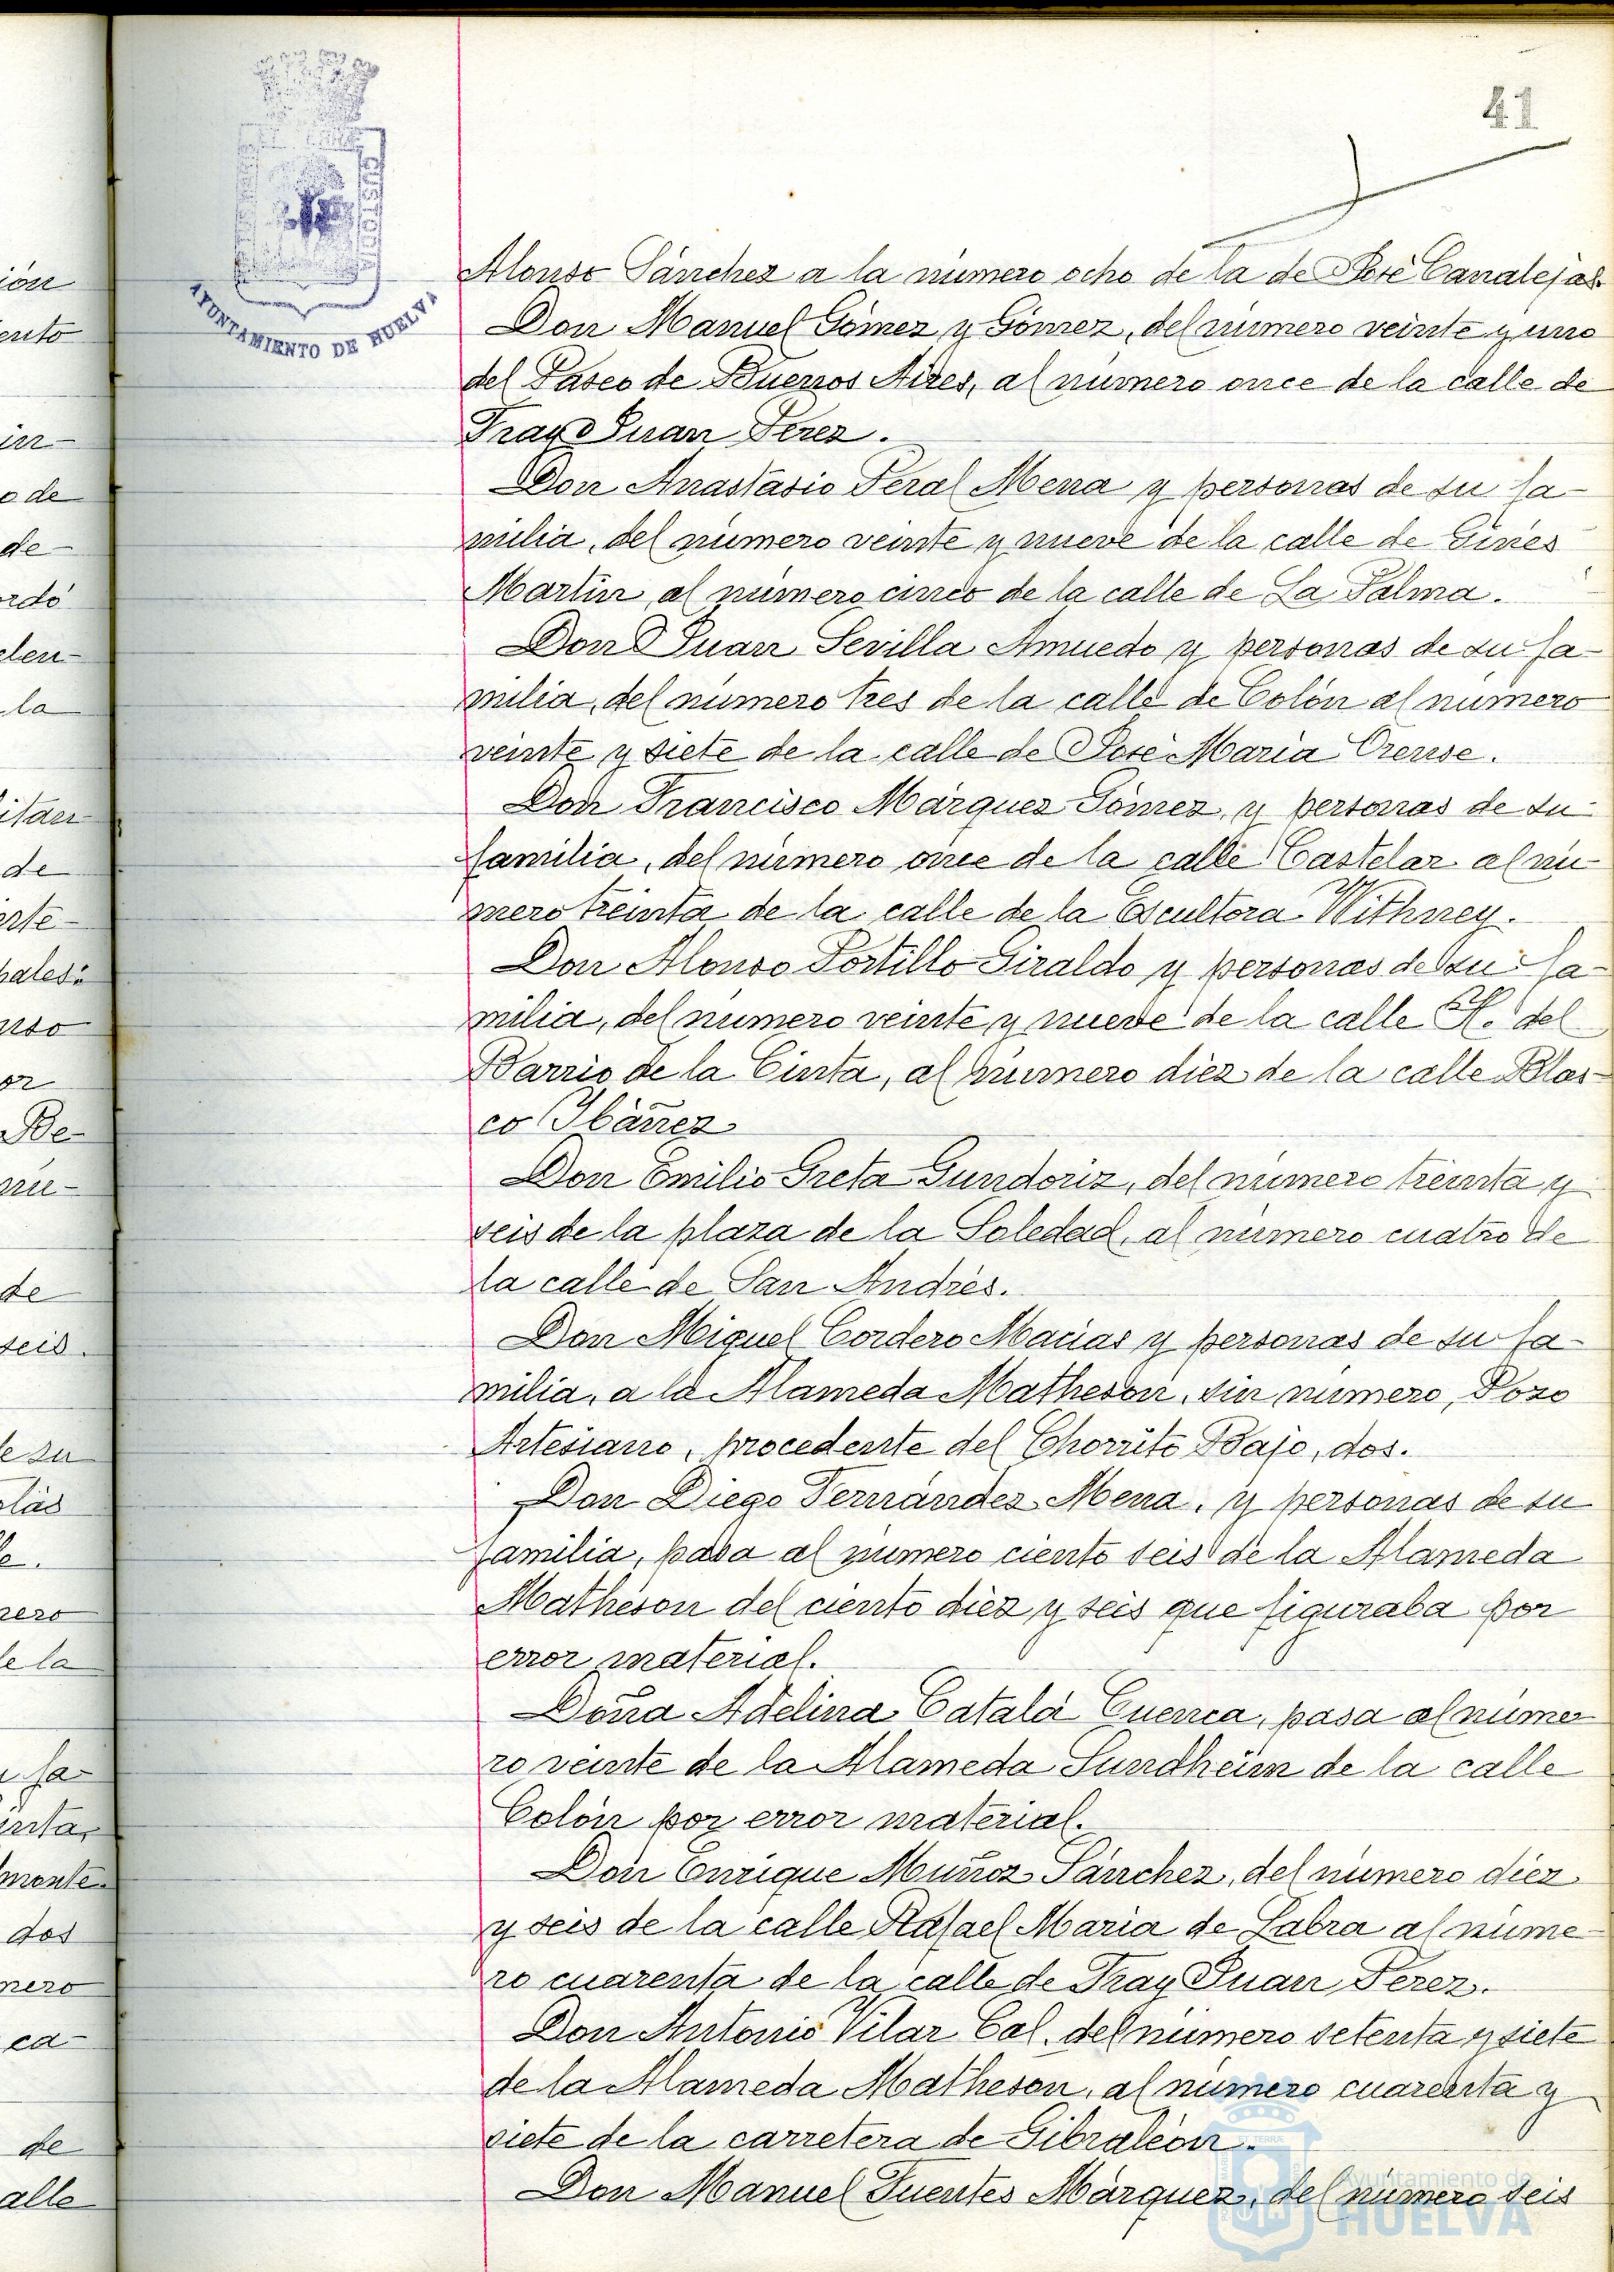 41
CUSTODIA
AYUNTAMIENTO DE HUELVA
Alonso Sánchez a la número ocho de la de José Canalejas.
Don Manuel Gómez y Gómez, del número veinte y uno
del Paseo de Buenos Aires, al número once de la calle de
Fray Juan Perez.
Don Anastásio Peral Mena y personas de su fa-
milia, del número veinte y nueve de la calle de Ginés
Martín al número cinco de la calle de La Palma.
Don Juan Sevilla Amuedo y personas de su fa-
milia, del número tres de la calle de Colón al número
veinte y siete de la calle de José María Orense.
Don Francisco Márquez Gómez, y personas de su
familia, del número once de la calle Castelar al nú-
mero treinta de la calle de la Escultora Withney.
Don Alonso Portillo Giraldo y personas de su fa-
milia, del número veinte y nueve de la calle H. del
Barrio de la Cinta, al número diez de la calle Blas-
co Ibáñez
Don Emilio Greta Gundoriz, del número treinta y
seis de la plaza de la Soledad, al número cuatro de
la calle de San Andrés.
Don Miguel Cordero Macías y personas de su fa-
milia, a la Alameda Matheson, sin número, Pozo
Artesiano, procedente del Chorrito Bajo, dos.
Don Diego Fernández Mena, y personas de su
familia, pasa al número ciento seis de la Alameda
Matheson del ciento diez y seis que figuraba por
error material.
Doña Adelina Catalá Cuenca, pasa al núme-
ro veinte de la Alameda Sundheim de la calle
Colón por error material.
Don Enrique Muñoz Sánchez, del número diez
y seis de la calle Rafael María de Labra al núme-
ro cuarenta de la calle de Fray Juan Perez.
Don Antonio Vilar Cal, del número setenta y siete
de la Alameda Matheson, al número cuarenta y
siete de la carretera de Gibraleón.
Don Manuel Fuentes Márquez, del número seis
Ayuntamiento de
HUELVA